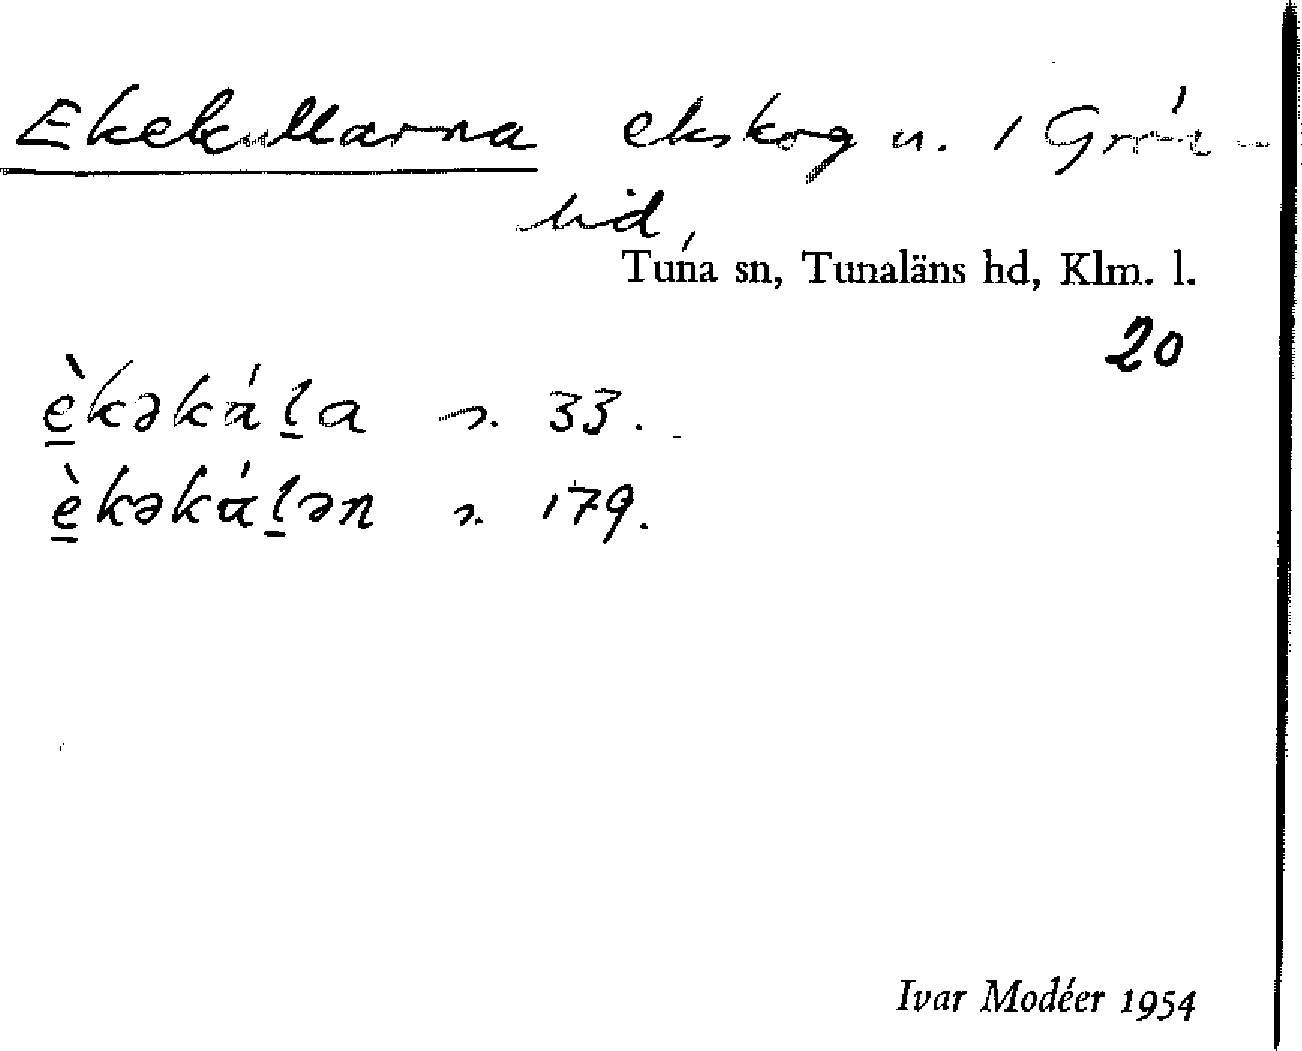 Ekekullarna ekskog u. 1 Grön-
lid,
Tuna sn, Tunaläns hd, Klm. l.
20
è̱kəkáḻa s. 33.
è̱kəkáḻən s. 179.
Ivar Modéer 1954